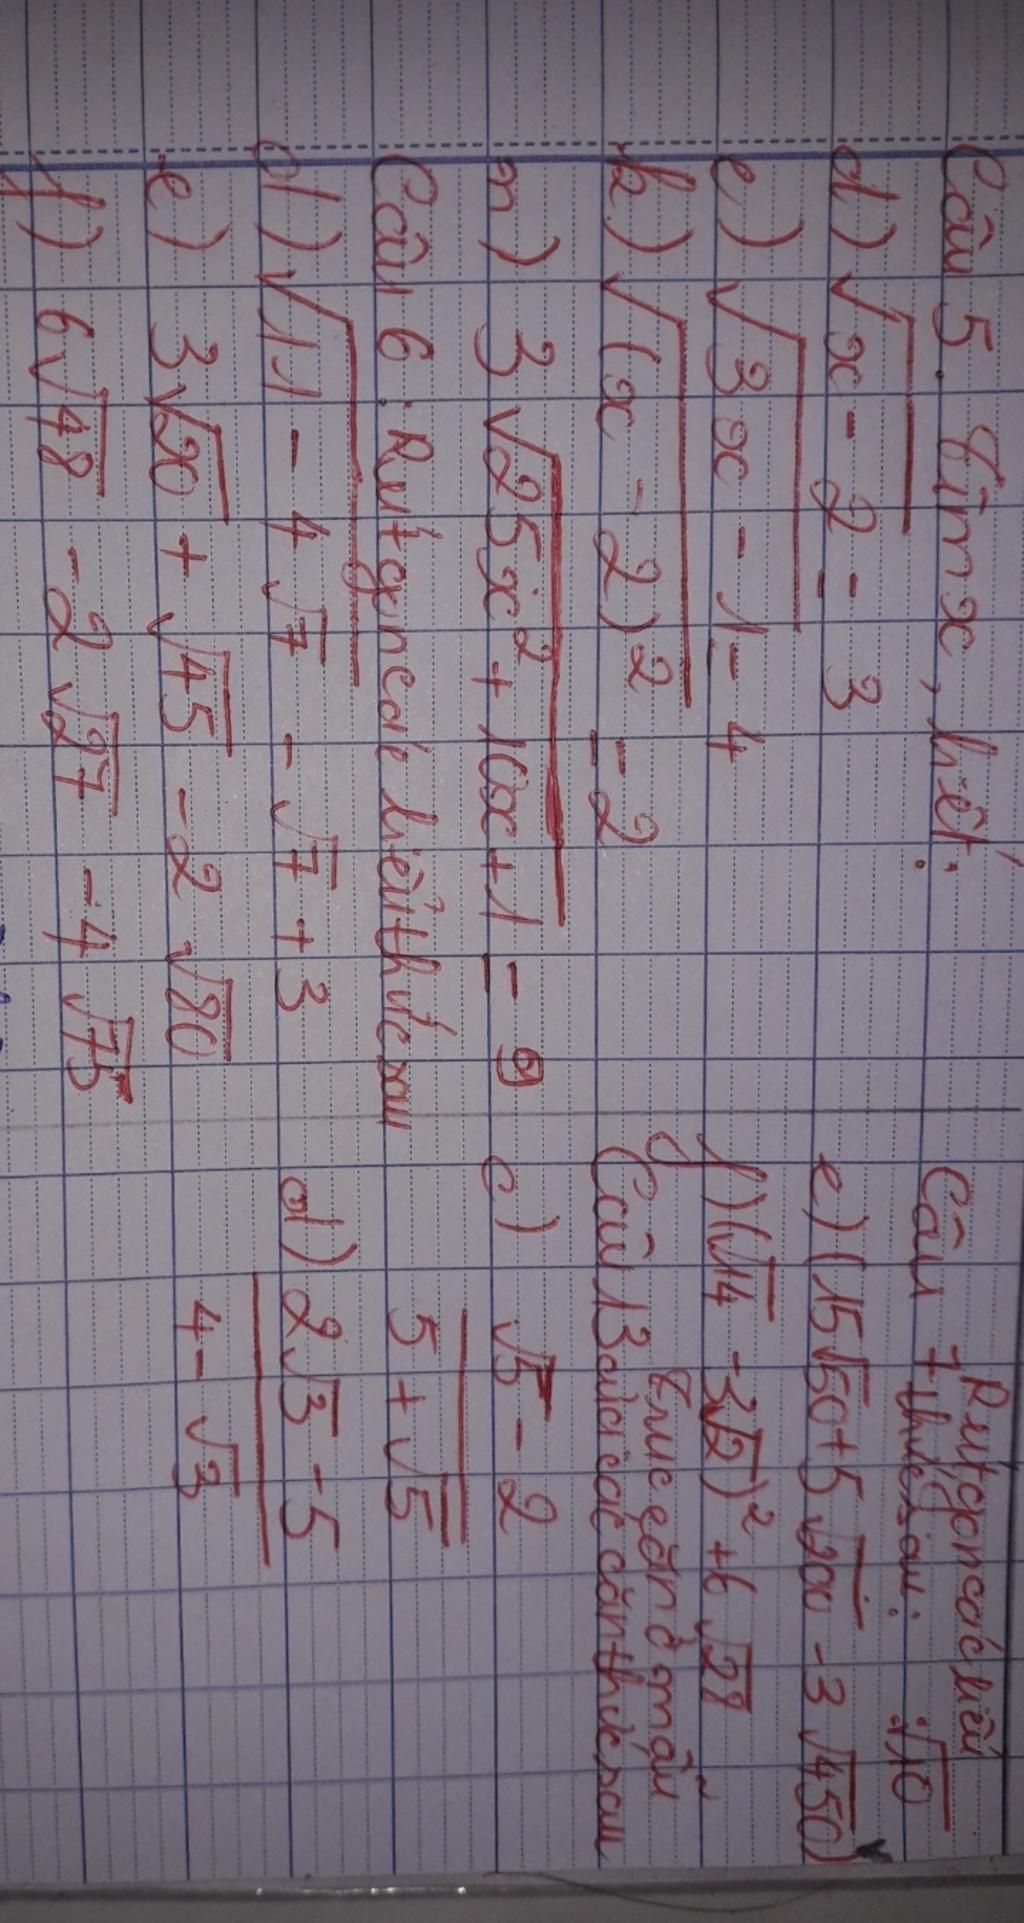 Câu 5. Tìm x, biết:
d) √x - 2 = 3
e) √3x - 1 = 4
h) √(x - 2)² = 2
n) 3 √25x² + 10x + 1 = 9
Câu 6 : Rút gọn các biểu thức sau
d) √11 - 4 √7 - √7 + 3
e) 3√20 + √45 - 2 √80
f) 6√48 - 2 √27 - 4 √75
Rút gọn các biểu
Câu 7 thức sau:
e) (15√50 + 5 √200 - 3 √450) : √10
f) (√14 - 3√2)² + 6 √28
Trục căn ở mẫu
Câu 13 của các căn thức sau
c) √5 - 2
5 + √5
d) 2√3 - 5
4 - √3